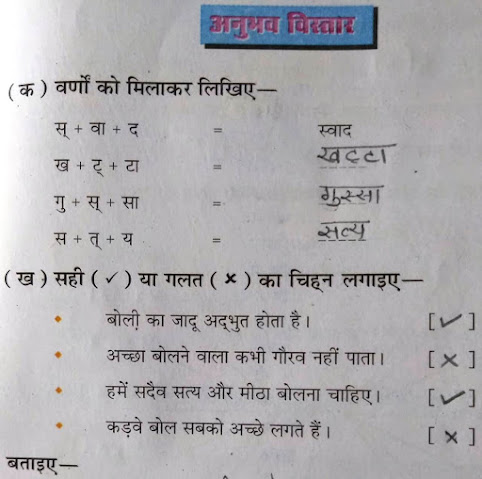 अनुभव विस्तार
( क ) वर्णों को मिलाकर लिखिए—
स् + वा + द = स्वाद
ख + ट् + टा = खट्टा
गु + स् + सा = गुस्सा
स + त् + य = सत्य
( ख ) सही ( ✓ ) या गलत ( × ) का चिह्न लगाइए—
• बोली का जादू अद्भुत होता है। [ ✓ ]
• अच्छा बोलने वाला कभी गौरव नहीं पाता। [ × ]
• हमें सदैव सत्य और मीठा बोलना चाहिए। [ ✓ ]
• कड़वे बोल सबको अच्छे लगते हैं। [ × ]
बताइए—